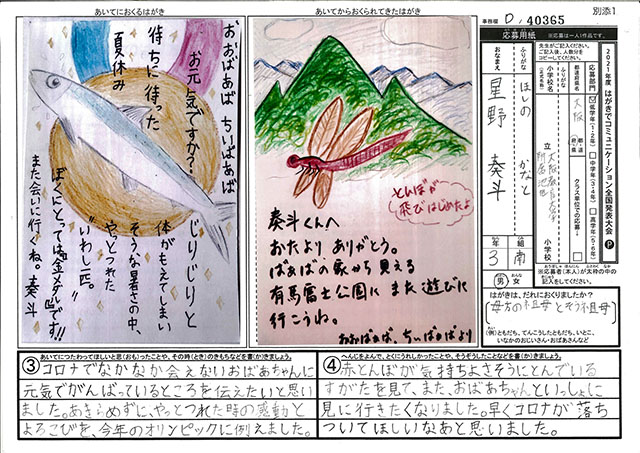 あいてにおくるはがき
おおばあば ちいばあば
お元気ですか？
待ちに待った
夏休み
じりじりと
体がもえてしまい
そうな暑さの中、
やっとつれた
"いわし一匹。"
ぼくにとっては"金メダル"です!!
また会いに行くね。奏斗
あいてからおくられてきたはがき
とんぼが
飛びはじめたよ
奏斗くんへ
おたより ありがとう。
ばぁばの家から見える
有馬富士公園に また遊びに
行こうね。
おおばぁば、ちいばぁばより
事務欄 D / 40365
別添1
応募用紙
※応募は一人1作品です。
2021年度 はがきでコミュニケーション全国発表大会 P
先生がご記入ください。
ご記入後、人数分を
コピーしてください。
応募部門
低学年(1・2年)
中学年(3・4年)
高学年(5・6年)
クラス単位での応募
都道府県名
大阪
都 道
府 県
ふりがな
小学校名
立
小学校
ふりがな
ほしの かなと
おなまえ
星野 奏斗
3 年
南 組
男 女
※応募者(本人)が太枠の中の
記入をしてください。
はがきは、だれにおくりましたか？
(母方の祖母とそう祖母)
(例)ともだち、てんこうしたともだち、いとこ、
いなかのおじいさん・おばあさんなど
③ あいてにつたわってほしいと思(おも)ったことや、その時(とき)のきもちなどを書(か)きましょう。
コロナでなかなか会えないおばあちゃんに
元気でがんばっているところを伝えたいと思い
ました。あきらめずに、やっとつれた時の感動と
よろこびを、今年のオリンピックに例えました。
④ へんじをよんで、とくにうれしかったことや、そうぞうしたことなどを書(か)きましょう。
赤とんぼが気持ちよさそうにとんでいる
すがたを見て、また、おばあちゃんといっしょに
見に行きたくなりました。早くコロナが落ち
ついてほしいなあと思いました。